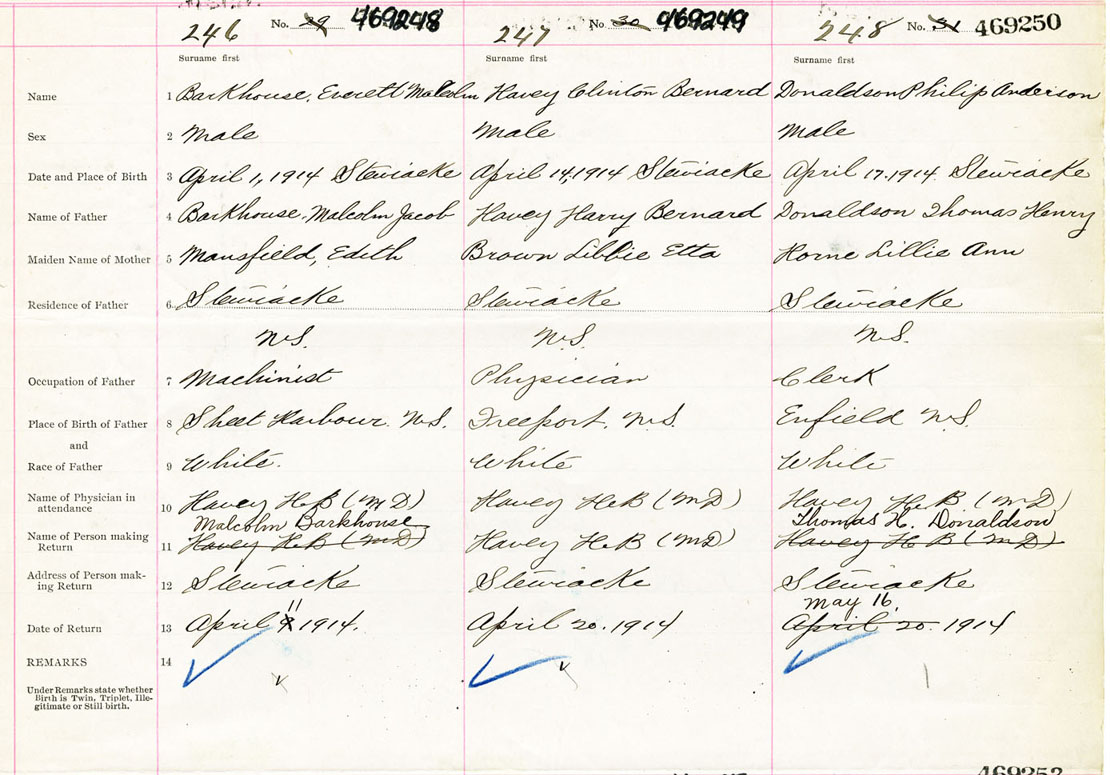 246 No. 29 469248 247 No. 30 469249 248 No. 31 469250
Surname first Surname first Surname first
Name 1 Barkhouse, Everett Malcolm Havey Clinton Bernard Donaldson Philip Anderson
Sex 2 Male Male Male
Date and Place of Birth 3 April 1, 1914 Stewiacke April 14, 1914 Stewiacke April 17, 1914 Stewiacke
Name of Father 4 Barkhouse, Malcolm Jacob Havey Harry Bernard Donaldson Thomas Henry
Maiden Name of Mother 5 Mansfield, Edith Brown Libbie Etta Horne Lillie Ann
Residence of Father 6 Stewiacke Stewiacke Stewiacke
N.S. N.S. N.S.
Occupation of Father 7 Machinist Physician Clerk
Place of Birth of Father 8 Sheet Harbour. N.S. Freeport. N.S. Enfield N.S.
and
Race of Father 9 White. White White
Name of Physician in
attendance 10 Havey H.B (MD) Havey H.B (MD) Havey H.B. (MD)
Malcolm Barkhouse Thomas H. Donaldson
Name of Person making
Return 11 Havey H.B (MD) Havey H.B (MD) Havey H B (MD)
Address of Person mak-
ing Return 12 Stewiacke Stewiacke Stewiacke
11 May 16.
Date of Return 13 April 9 1914. April 20. 1914 April 20. 1914
REMARKS 14
Under Remarks state whether
Birth is Twin, Triplet, Ille-
gitimate or Still birth.
469252